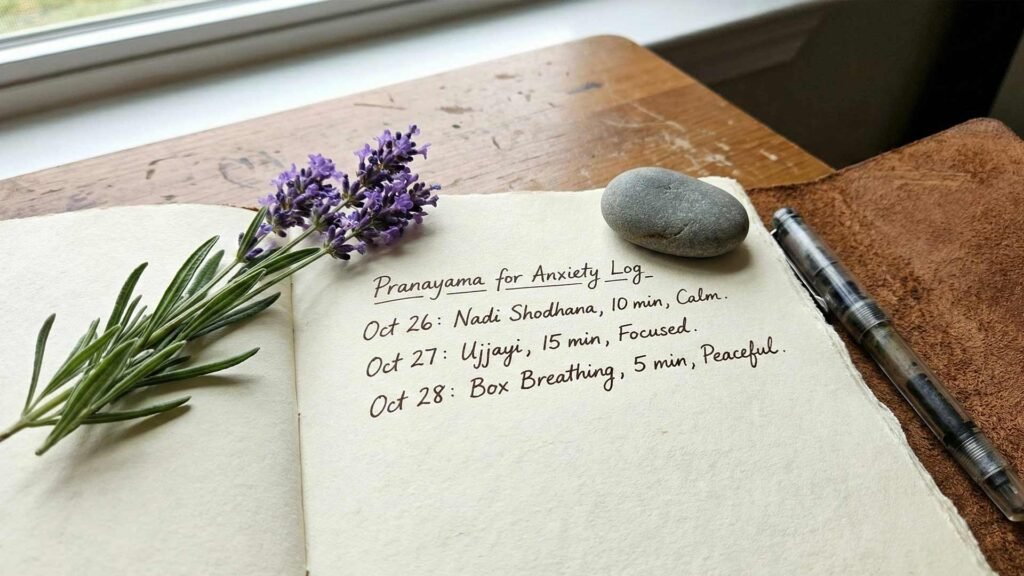 Pranayama for Anxiety Log
Oct 26: Nadi Shodhana, 10 min, Calm.
Oct 27: Ujjayi, 15 min, Focused.
Oct 28: Box Breathing, 5 min, Peaceful.